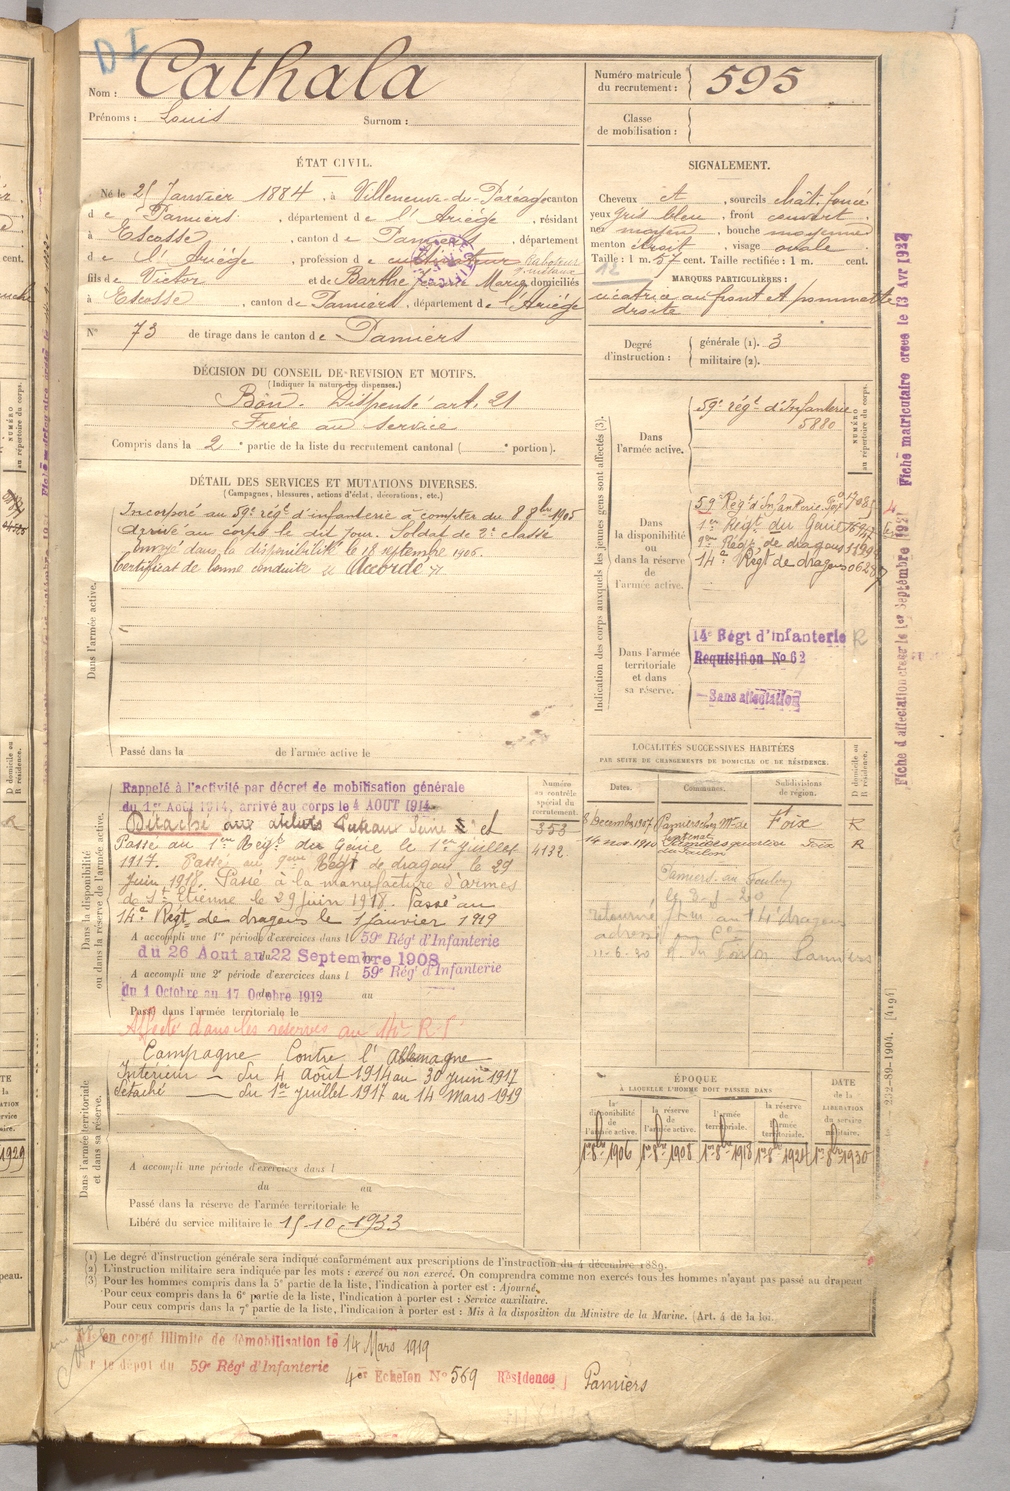 D I
Nom : Cathala
Prénoms : Louis Surnom :
Numéro matricule du recrutement : 595
Classe de mobilisation :
ÉTAT CIVIL.
Né le 25 Janvier 1884, à Villeneuve-du-Paréage canton
de Pamiers, département de l'Ariège, résidant
à Escosse, canton de Pamiers, département
de l'Ariège, profession de cultivateur
fils de Victor et de Barthe Marie domiciliés
à Escosse, canton de Pamiers, département de l'Ariège
N° 73 de tirage dans le canton de Pamiers
SIGNALEMENT.
Cheveux et, sourcils chât. foncé
yeux gris bleu, front couvert
nez moyen, bouche moyenne
menton droit, visage ovale
Taille : 1 m. 57 cent. Taille rectifiée : 1 m. cent.
12
MARQUES PARTICULIÈRES :
cicatrice au front et pommette
droite
Degré d'instruction : générale (1). 3
militaire (2).
DÉCISION DU CONSEIL DE REVISION ET MOTIFS.
(Indiquer la nature des dispenses.)
Bon. Dispensé art. 21
Frère au service
Compris dans la 2e partie de la liste du recrutement cantonal ( e portion).
DÉTAIL DES SERVICES ET MUTATIONS DIVERSES.
(Campagnes, blessures, actions d'éclat, décorations, etc.)
Dans l'armée active.
Incorporé au 59e régt d'infanterie à compter du 8 8bre 1905
Arrivé au corps le dit jour. Soldat de 2e classe
Envoyé dans la disponibilité le 18 septembre 1906.
Certificat de bonne conduite "Accordé"
Passé dans la de l'armée active le
Indication des corps auxquels les jeunes gens sont affectés (3).
NUMÉRO au répertoire du corps.
Dans l'armée active.
59e régt d'Infanterie
5880
Dans la disponibilité ou dans la réserve de l'armée active.
59e Régt d'Infanterie
1er Régt du Génie
9me Régt de dragons
14e Régt de dragons
Dans l'armée territoriale et dans sa réserve.
14e Régt d'Infanterie R
Requisition No 62
Sans affectation
Fiche d'affectation creee le 1er Septembre 1921 Fiche matriculaire creee le 13 Avr 1932
LOCALITÉS SUCCESSIVES HABITÉES
PAR SUITE DE CHANGEMENTS DE DOMICILE OU DE RÉSIDENCE.
Dates. Communes. Subdivisions de région. D domicile ou R résidence.
8 Décembre 1907 Pamiers Foix R
14 nov. 1910 Foix R
Pamiers
retourné au 14e dragons
11-6-30 Pamiers
Dans la disponibilité ou dans la réserve de l'armée active.
Numéro au contrôle spécial du recrutement.
353
4132
Rappelé à l'activité par décret de mobilisation générale
du 1er Aout 1914, arrivé au corps le 4 AOUT 1914
Détaché aux ateliers Puteaux Seine et
Passé au 1er Régt du Génie le 1er Juillet
1917. Passé au 9me Régt de dragons le 29
Juin 1918. Passé à la manufacture d'armes
de St Etienne le 29 juin 1918. Passé au
14e Régt de dragons le 1 janvier 1919
A accompli une 1re période d'exercices dans l 59e Rég' d'Infanterie
du 26 Aout au 22 Septembre 1908
A accompli une 2e période d'exercices dans l 59e Rég' d'Infanterie
du 1 Octobre au 17 Octobre 1912 au
Passé dans l'armée territoriale le
Affecté dans les réserves au 14e R I
Dans l'armée territoriale et dans sa réserve.
Campagne Contre l'Allemagne
Intérieur – du 4 Août 1914 au 30 juin 1917
Détaché – du 1er juillet 1917 au 14 Mars 1919
A accompli une période d'exercices dans l
du au
Passé dans la réserve de l'armée territoriale le
Libéré du service militaire le 15-10-1933
ÉPOQUE
À LAQUELLE L'HOMME DOIT PASSER DANS
DATE DE LA LIBÉRATION du service militaire.
la disponibilité de l'armée active.
la réserve de l'armée active.
l'armée territoriale.
la réserve de l'armée territoriale.
1er 8bre 1906 1er 8bre 1908 1er 8bre 1918 1er 8bre 1924 1er 8bre 1930
232-89-1904. [4191]
(1) Le degré d'instruction générale sera indiqué conformément aux prescriptions de l'instruction du 4 décembre 1889.
(2) L'instruction militaire sera indiquée par les mots : exercé ou non exercé. On comprendra comme non exercés tous les hommes n'ayant pas passé au drapeau
(3) Pour les hommes compris dans la 5e partie de la liste, l'indication à porter est : Ajourné.
Pour ceux compris dans la 6e partie de la liste, l'indication à porter est : Service auxiliaire.
Pour ceux compris dans la 7e partie de la liste, l'indication à porter est : Mis à la disposition du Ministre de la Marine. (Art. 4 de la loi.
en congé illimité de démobilisation le 14 Mars 1919
r le dépot du 59e Rég' d'Infanterie
4er Echelon No 569 Residence Pamiers